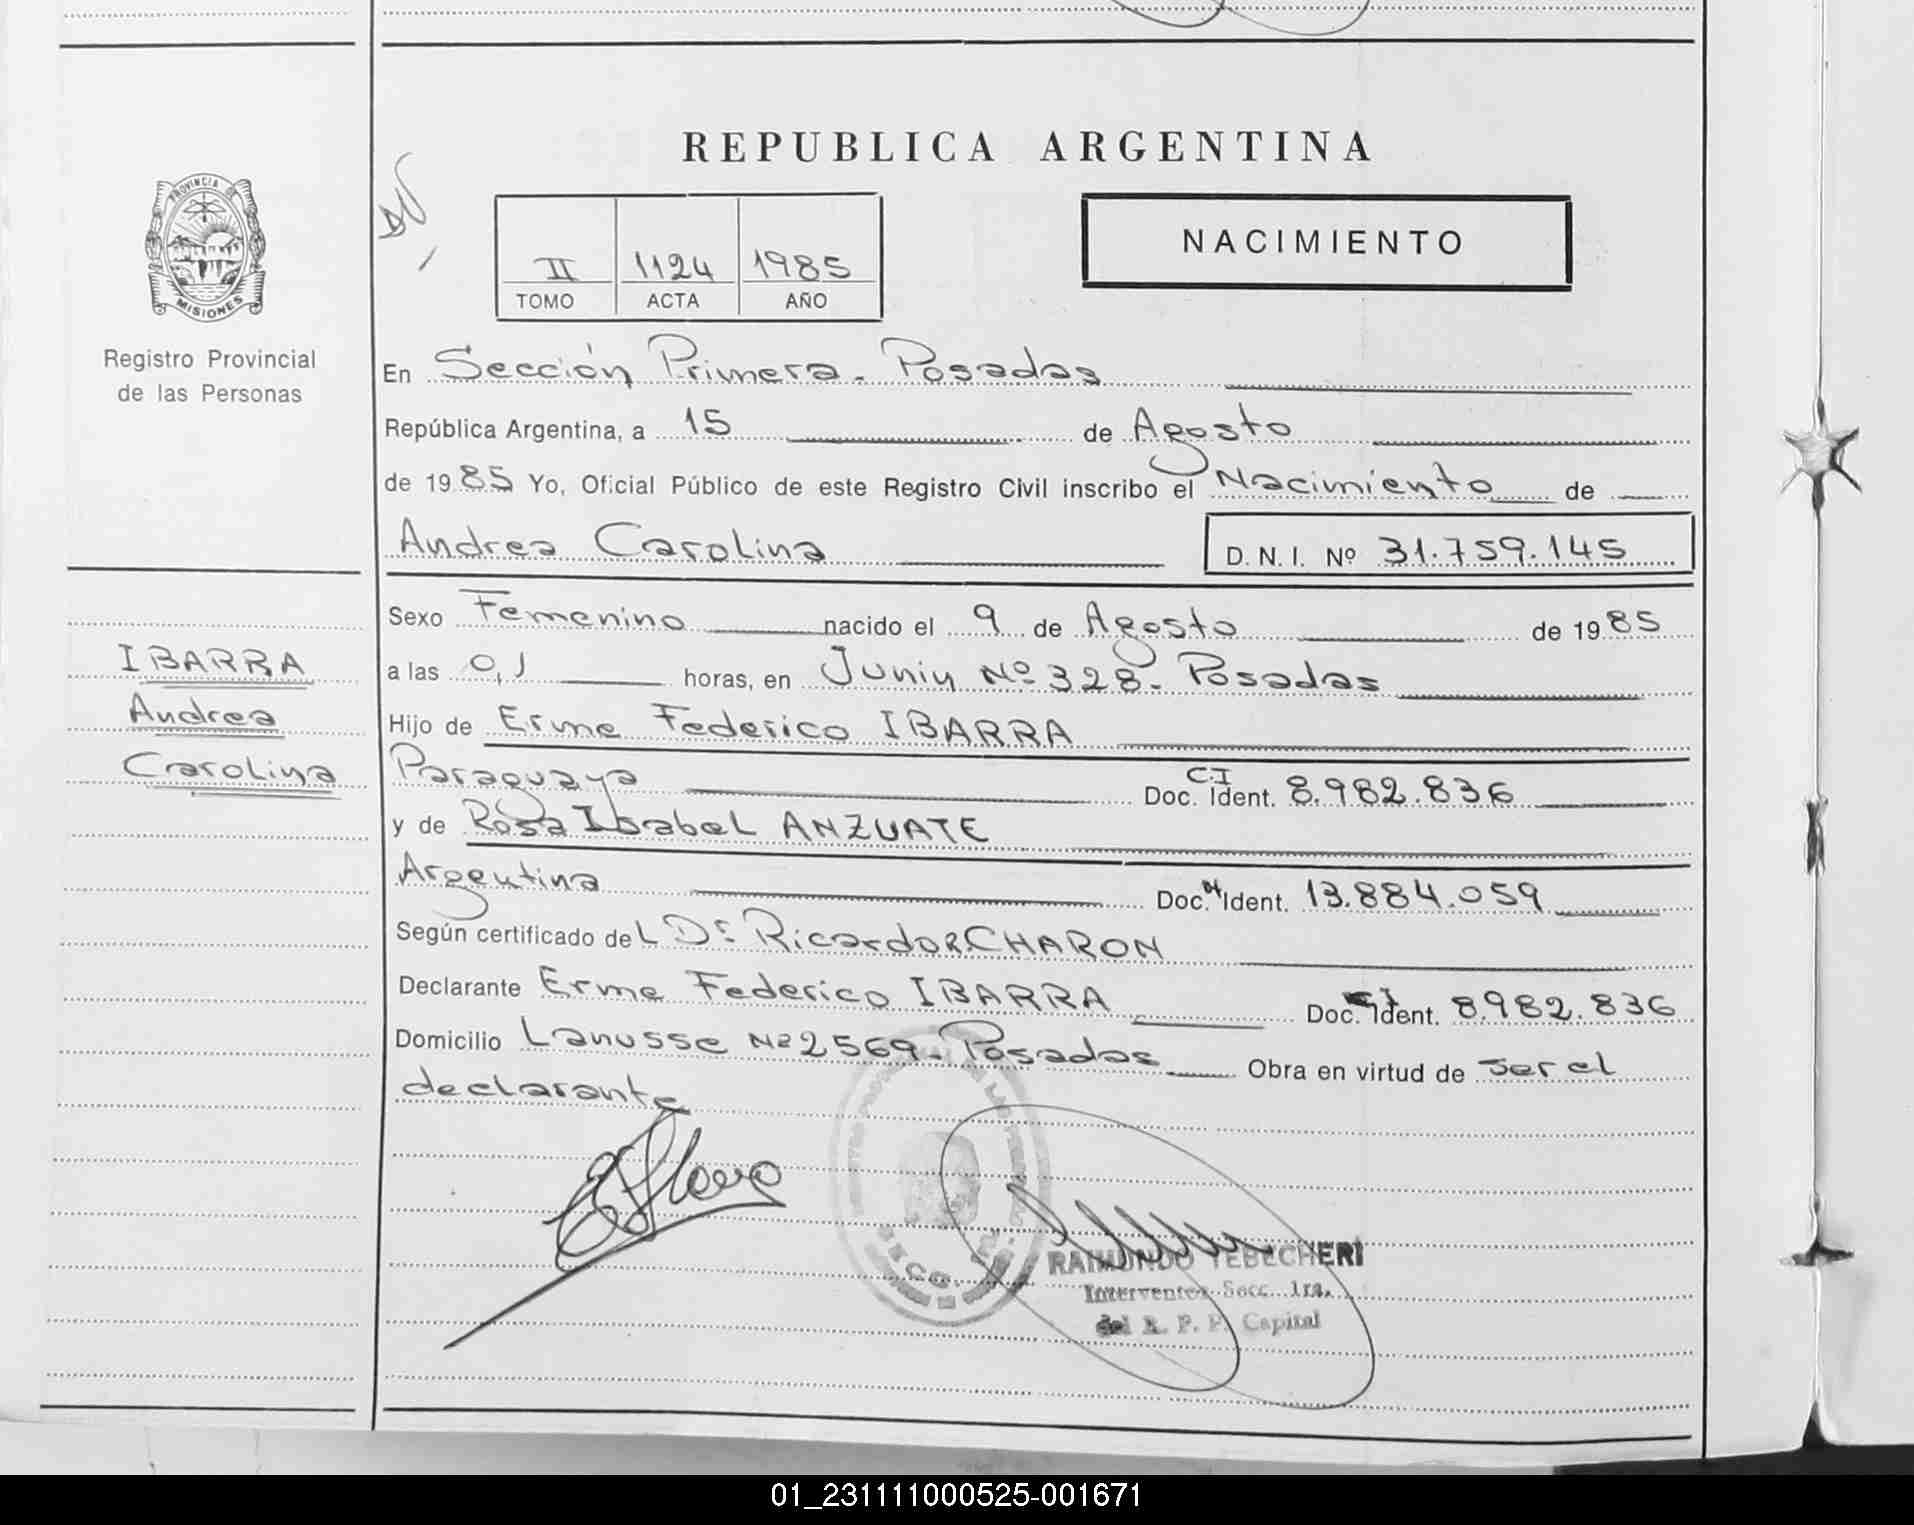 REPUBLICA ARGENTINA
PROVINCIA DE
MISIONES
Registro Provincial
de las Personas
II 1124 1985
TOMO ACTA AÑO
NACIMIENTO
En Sección Primera - Posadas
República Argentina, a 15 de Agosto
de 1985 Yo, Oficial Público de este Registro Civil inscribo el Nacimiento de
Andrea Carolina D. N. I. Nº 31.759.145
Sexo Femenino nacido el 9 de Agosto de 1985
IBARRA
Andrea
Carolina
a las 0,1 horas, en Junín Nº 328 - Posadas
Hijo de Erme Federico IBARRA
Paraguaya C.I Doc. Ident. 8.982.836
y de Rosa Isabel ANZUATE
Argentina Doc. Ident. 13.884.059
Según certificado del Dr Ricardo R. CHARON
Declarante Erme Federico IBARRA Doc. CI Ident. 8.982.836
Domicilio Lanusse Nº 2569 - Posadas Obra en virtud de ser el
declarante
RAIMUNDO TEBECHERI
Interventor Secc. 1ra.
del R. P. P. Capital
01_231111000525-001671